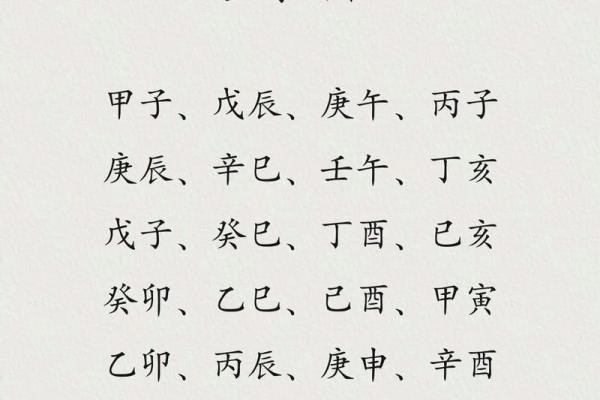 甲子、戊辰、庚午、丙子
庚辰、辛巳、壬午、丁亥
戊子、癸巳、丁酉、已亥
癸卯、乙巳、己酉、甲寅
乙卯、丙辰、庚申、辛酉